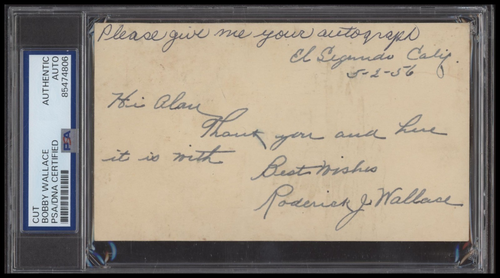 Please give me your autograph
El Segundo Calif.
5-2-56
Hi Alan
Thank you and here
it is with Best Wishes
Roderick J. Wallace
CUT
BOBBY WALLACE
PSA/DNA CERTIFIED
PSA
AUTHENTIC
AUTO
85474806